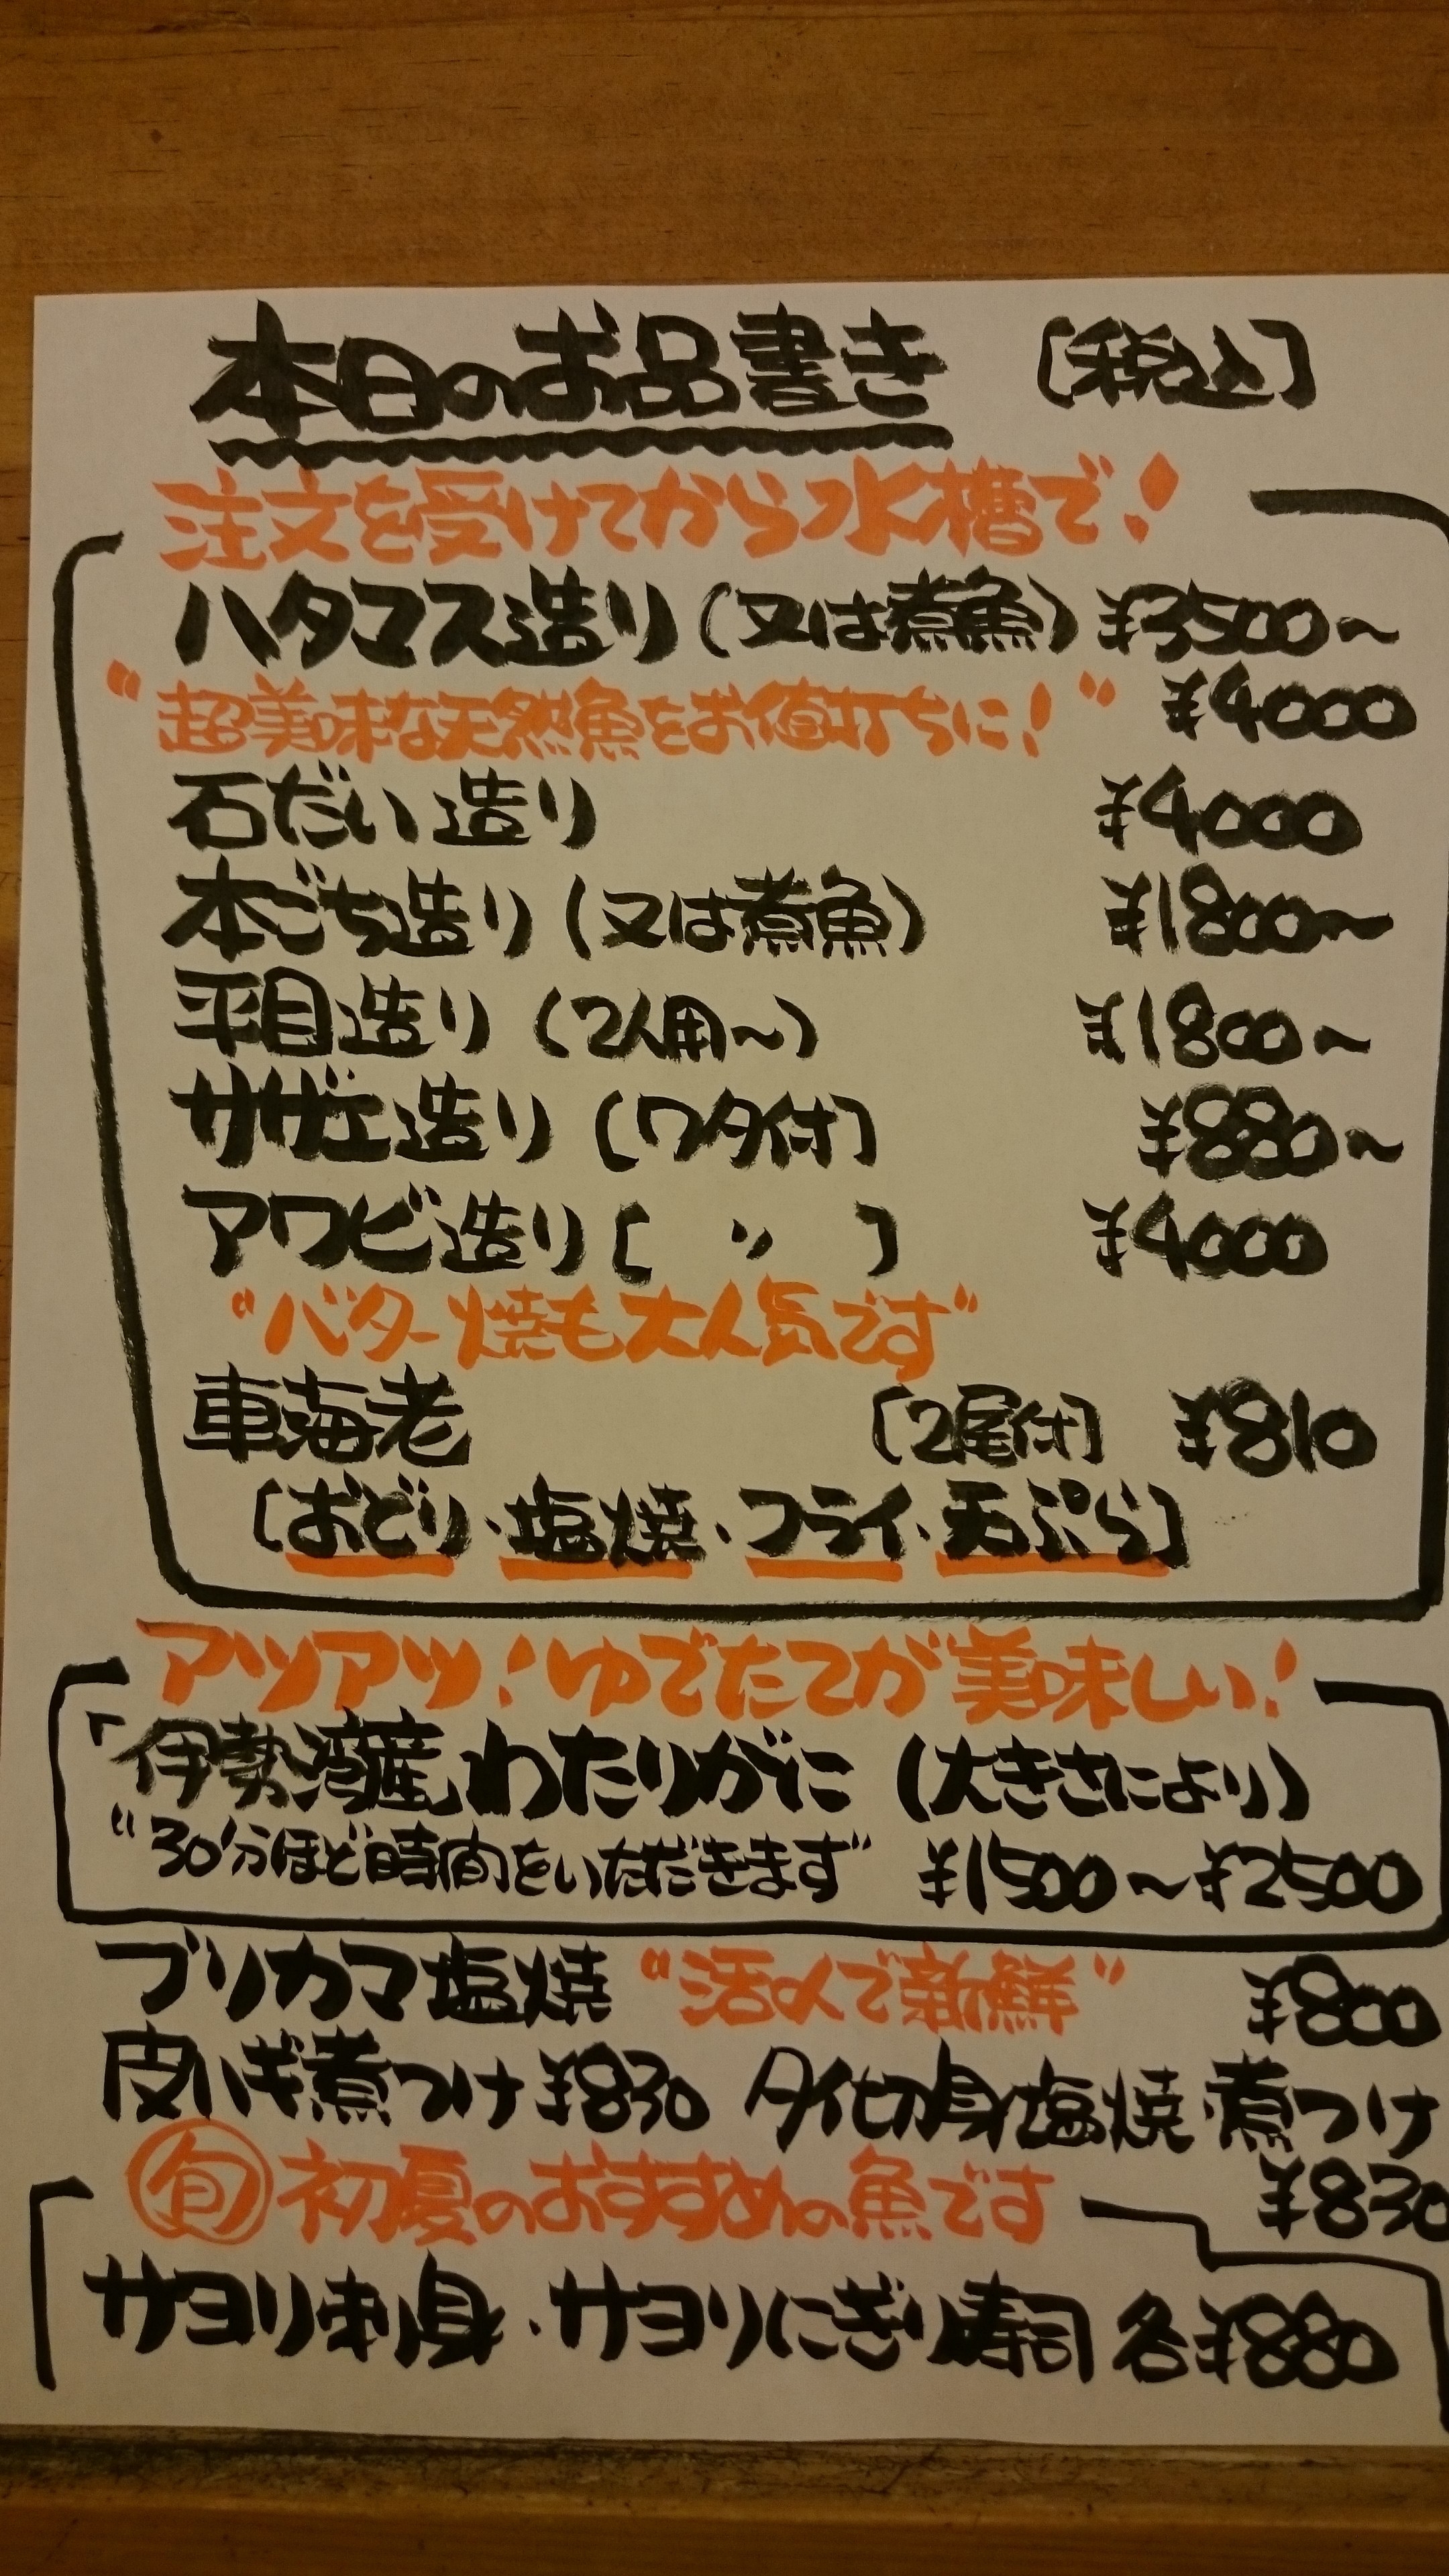 本日のお品書き [税込]
注文を受けてから水槽で!
ハタマス造り(又は煮魚) ¥3500~
¥4000
"超美味な天然魚をお値打ちに!"
石だい造り ¥4000
本ごち造り(又は煮魚) ¥1800~
平目造り(2人用~) ¥1800~
サザエ造り[ワタ付] ¥880~
アワビ造り[ 〃 ] ¥4000
"バター焼も大人気です"
車海老 [2尾付] ¥810
[おどり・塩焼・フライ・天ぷら]
アツアツ!ゆでたてが美味しい!
伊勢湾産わたりがに(大きさにより)
"30分ほど時間をいただきます" ¥1500~¥2500
ブリカマ塩焼 "活〆で新鮮" ¥800
皮ハギ煮つけ ¥830 タイ切身塩焼・煮つけ
¥830
旬 初夏のおすすめの魚です
サヨリ刺身・サヨリにぎり寿司 各¥880